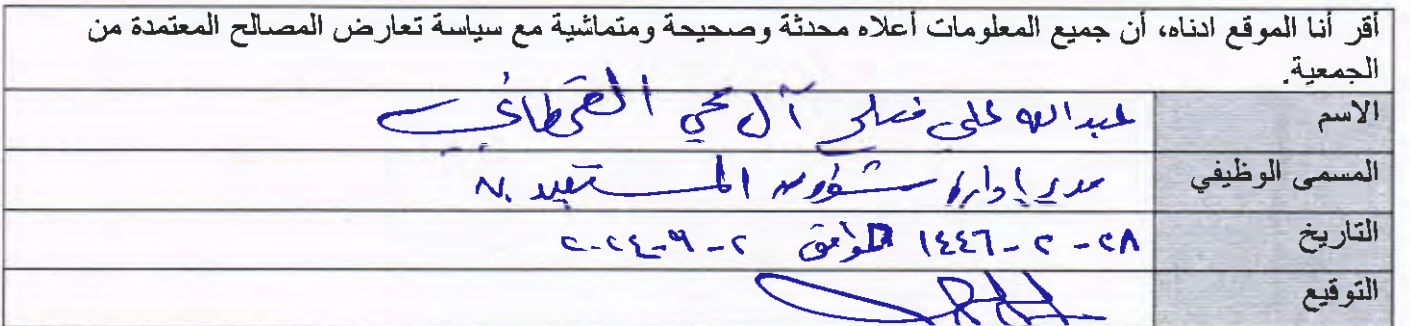 أقر أنا الموقع ادناه، أن جميع المعلومات أعلاه محدثة وصحيحة ومتماشية مع سياسة تعارض المصالح المعتمدة من
الجمعية.
الاسم عبدالله علي آل محي القحطاني
المسمى الوظيفي مدير إدارة شؤون المستفيدين
التاريخ ٢٨-٢-١٤٤٦ الموافق ٢-٩-٢٠٢٤
التوقيع